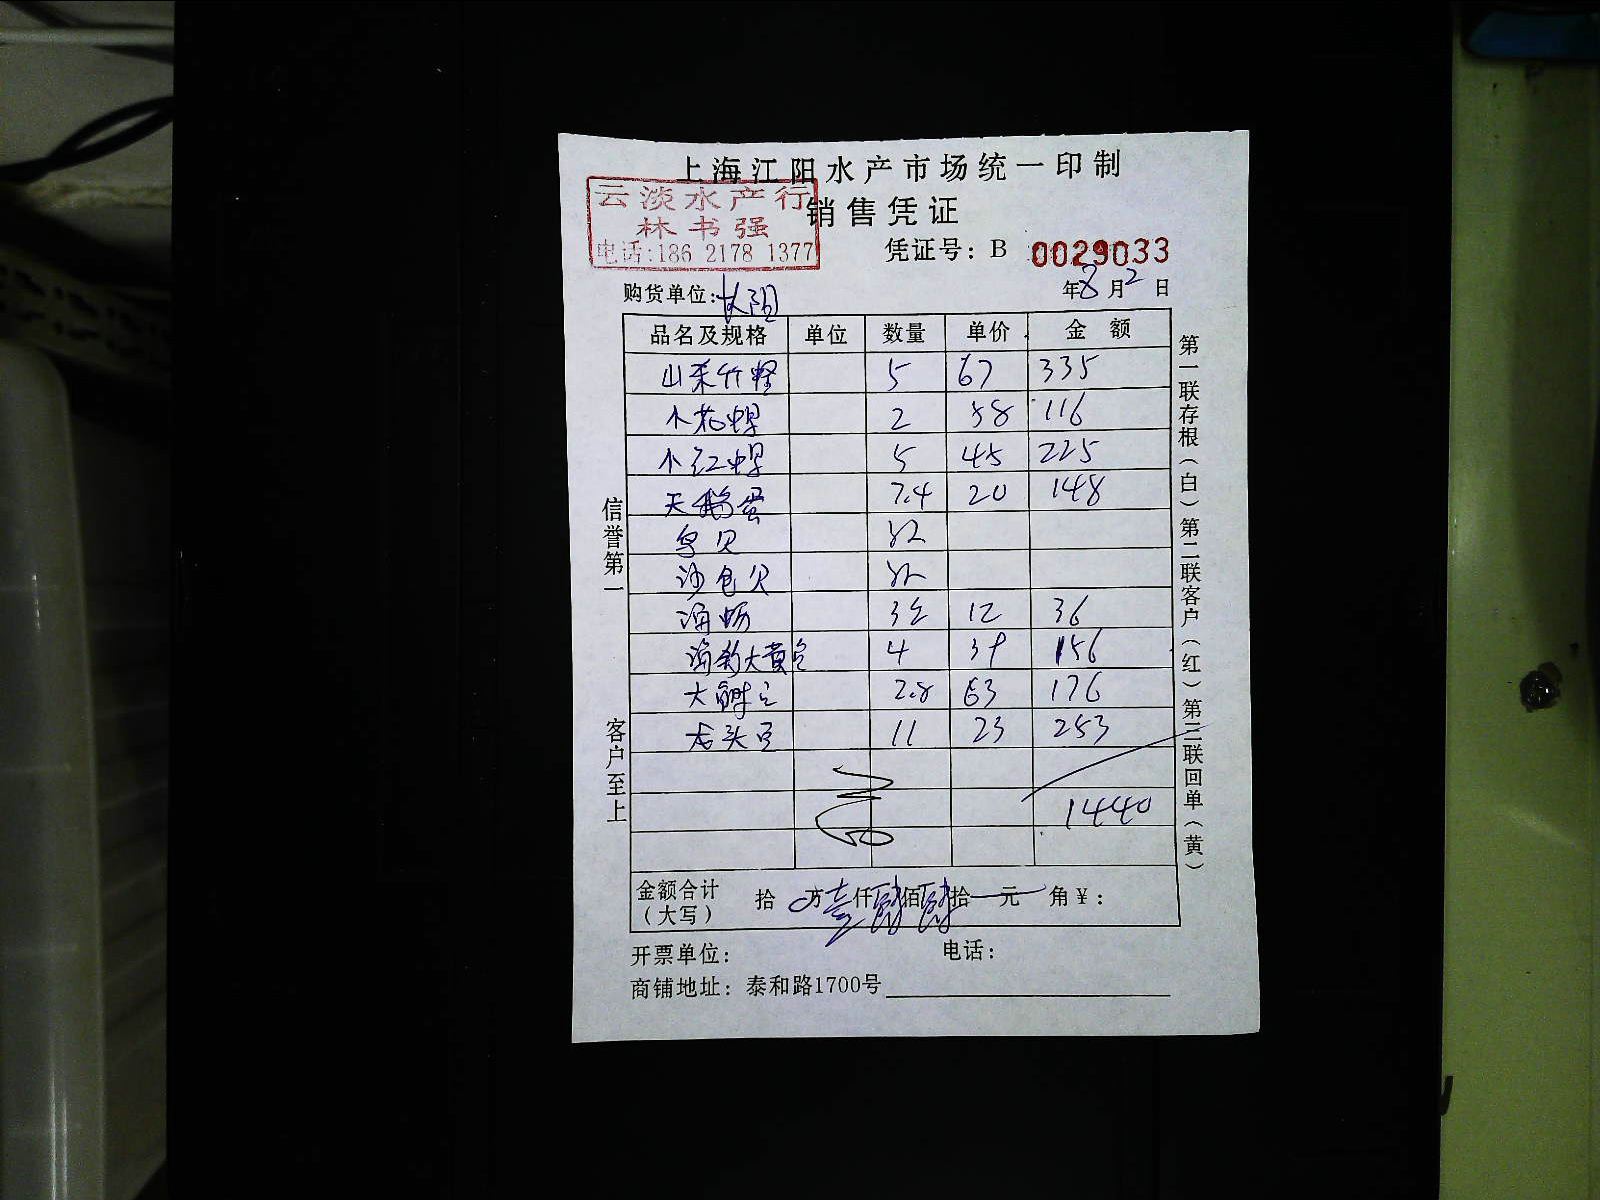 上海江阳水产市场统一印制
云淡水产行
销售凭证
林书强
电话:186 2178 1377
凭证号: B 0029033
购货单位: 长阳
年8月2日
品名及规格 单位 数量 单价 金额
5 67 335
小花 2 58 116
小红 5 45 225
天鹅蛋 7.4 20 148
鸟贝
沙包贝
海蛎 3 12 36
大黄 4 39 156
大 2.8 63 176
龙头 11 23 253
1440
金额合计 拾 万壹仟肆佰肆拾 元 角 ¥:
(大写)
开票单位: 电话:
商铺地址: 泰和路1700号
信誉第一
客户至上
第一联存根(白)第二联客户(红)第三联回单(黄)